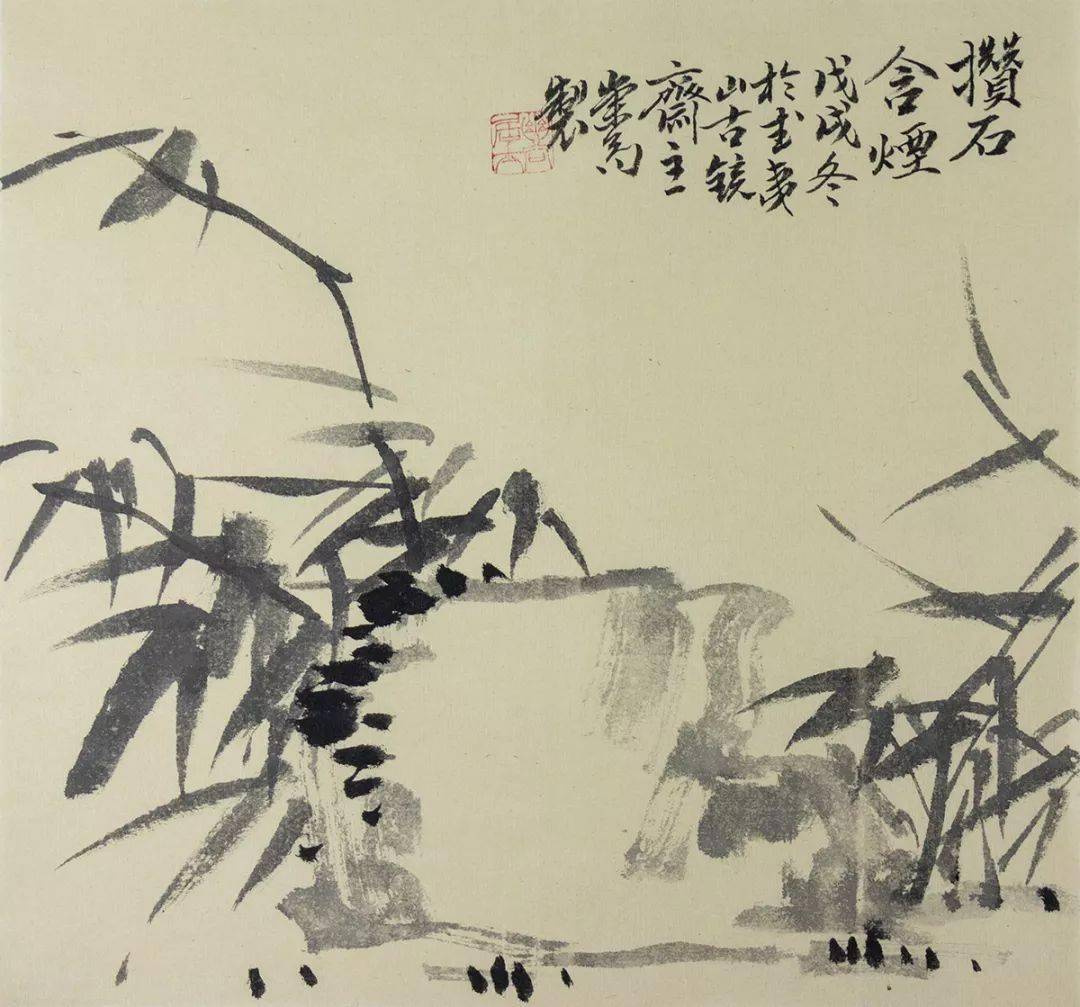 攢石
含煙
戊戌冬
於武夷
山古鏡
齋主
製